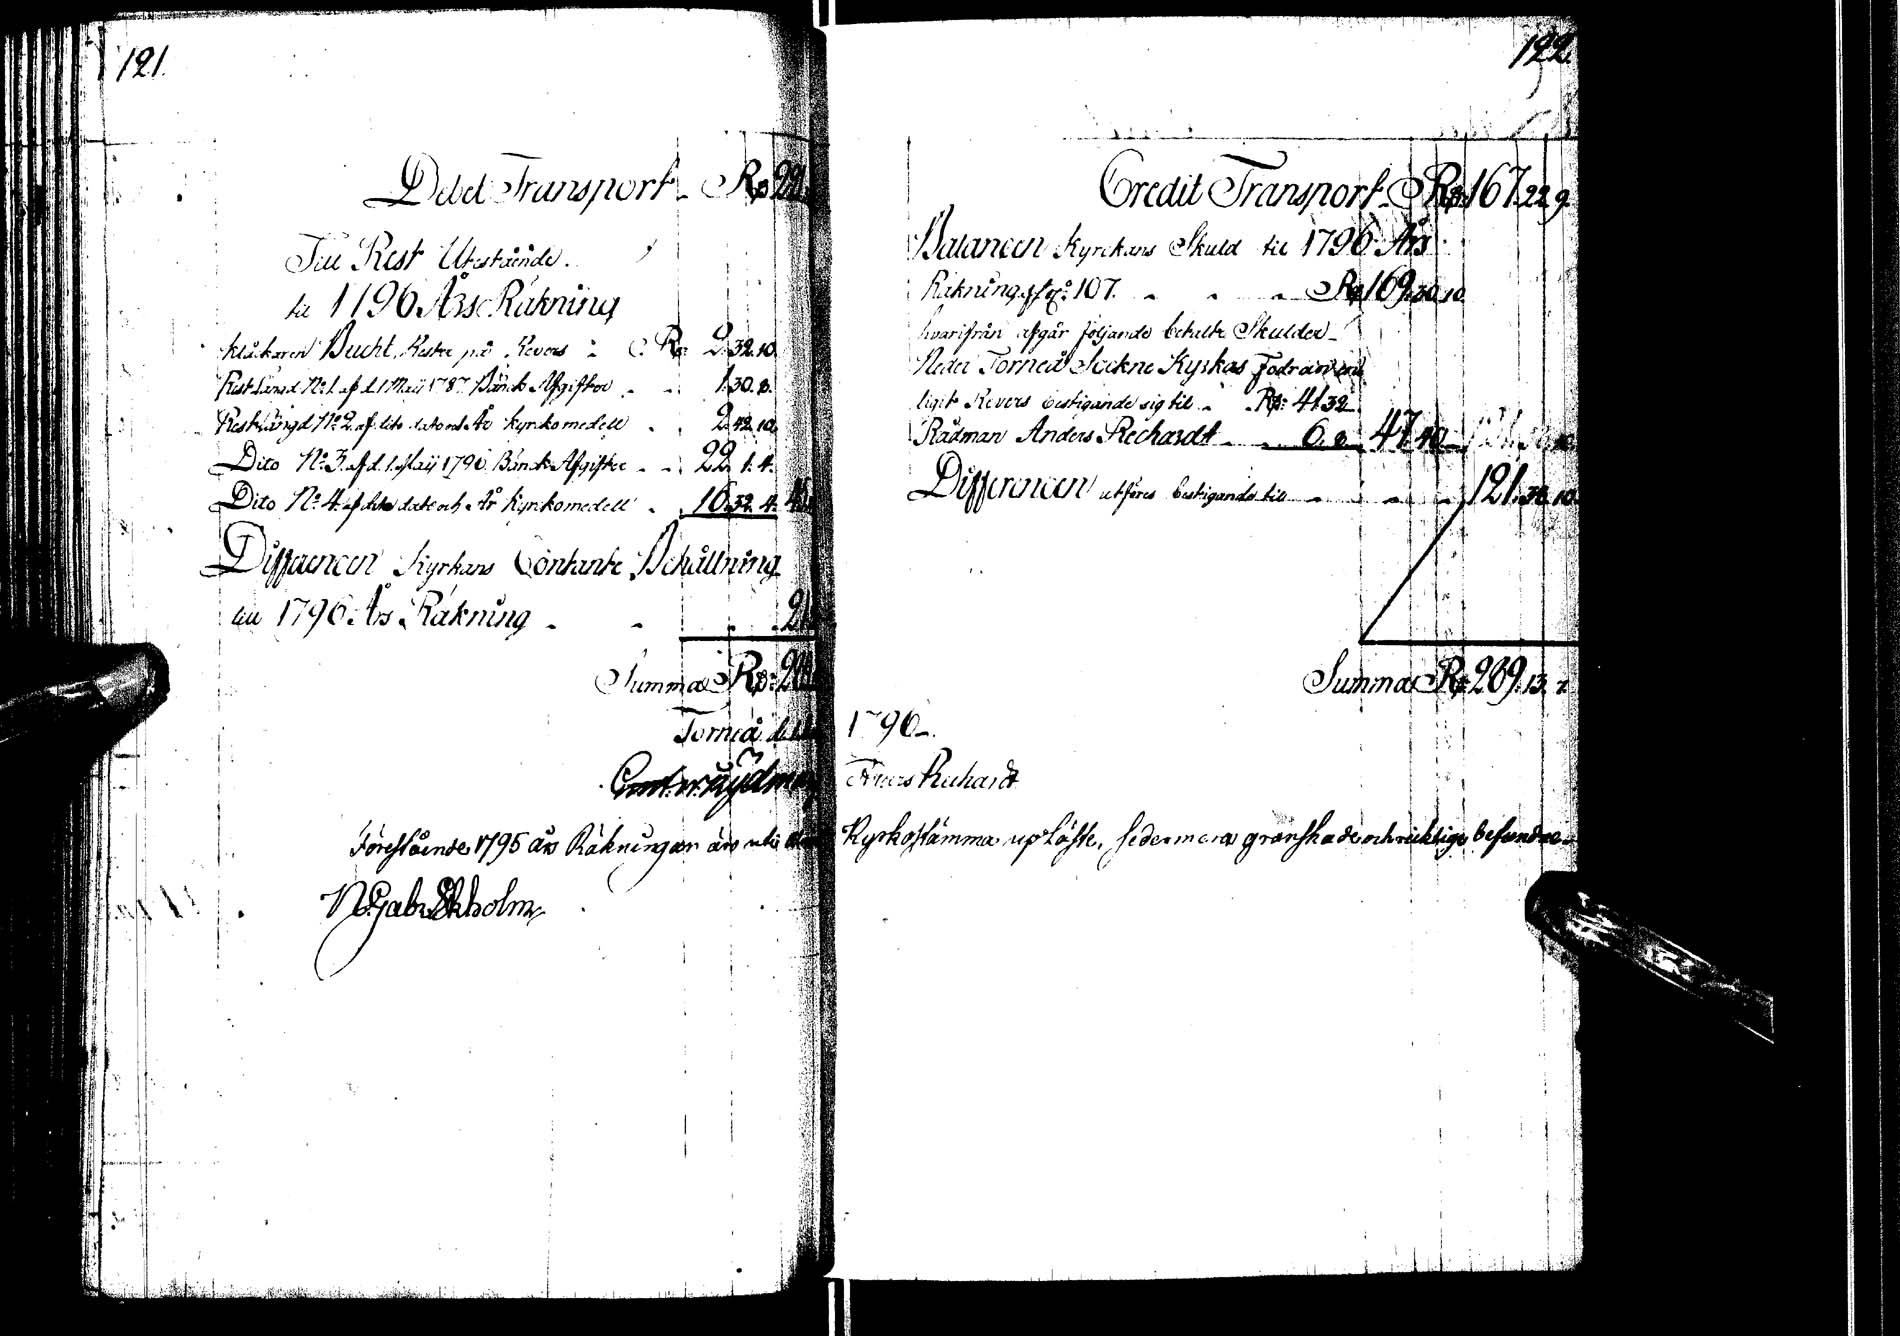 121.
Debet Transport Rd 221
Till Rest Utestående.
til 1796 Års Räkning
klåkaren Bucht, Resten på Revers Rd 2.32.10.
Restlängd No 1. af d. 1 Maij 1787 Bänck Afgifter 1.30.8.
Restlängd No 2. af dito dato och År Kyrkomedell 2.42.10.
Dito No 3. af d. 1 Maij 1796 Bänck Afgifter 22. 1.4.
Dito No 4. af dito dato och År Kyrkomedell 16.32.4.
Differencen Kyrkans Contante Behållning
till 1796 Års Räkning
Summa Rd
Torneå
Förestående 1795 års Räkningar äro uti
N. Gab. Ekholm
122.
Credit Transport Rd 167.22.9.
Balancen Kyrckans Skuld til 1796 Års
Räkning pag: 107. Rd 169.30.10.
hvarifrån afgår följande betalte Skulder
Neder Torneå Sockne Kyrkas
ligit Revers bestigande sig til Rd: 41.32
Rådman Anders Rechardt 6.8 47.40
Differencen utföres bestigande til 121.38.10.
Summa Rd 289.13.7
1796.
Anders Rechardt
Kyrkostämma uplöste, sedermera granskade och richtige befundne